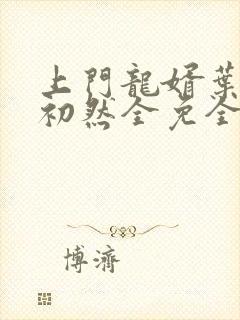 上門龍婿葉
初然全免全
博濟